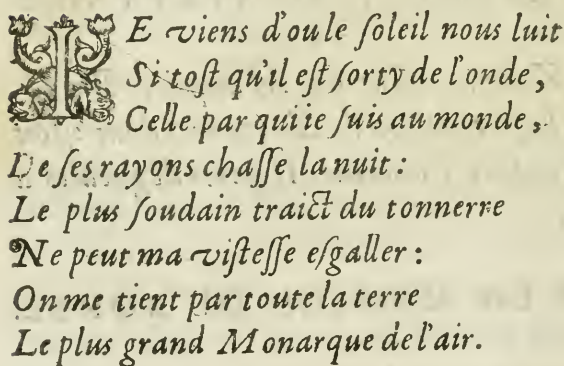 IE viens d'ou le ſoleil nous luit
Si toſt qu'il eſt ſorty de l'onde,
Celle par qui ie ſuis au monde,
De ſes rayons chaſſe la nuit :
Le plus ſoudain traict du tonnerre
Ne peut ma viſteſſe eſgaller :
On me tient par toute la terre
Le plus grand Monarque de l'air.